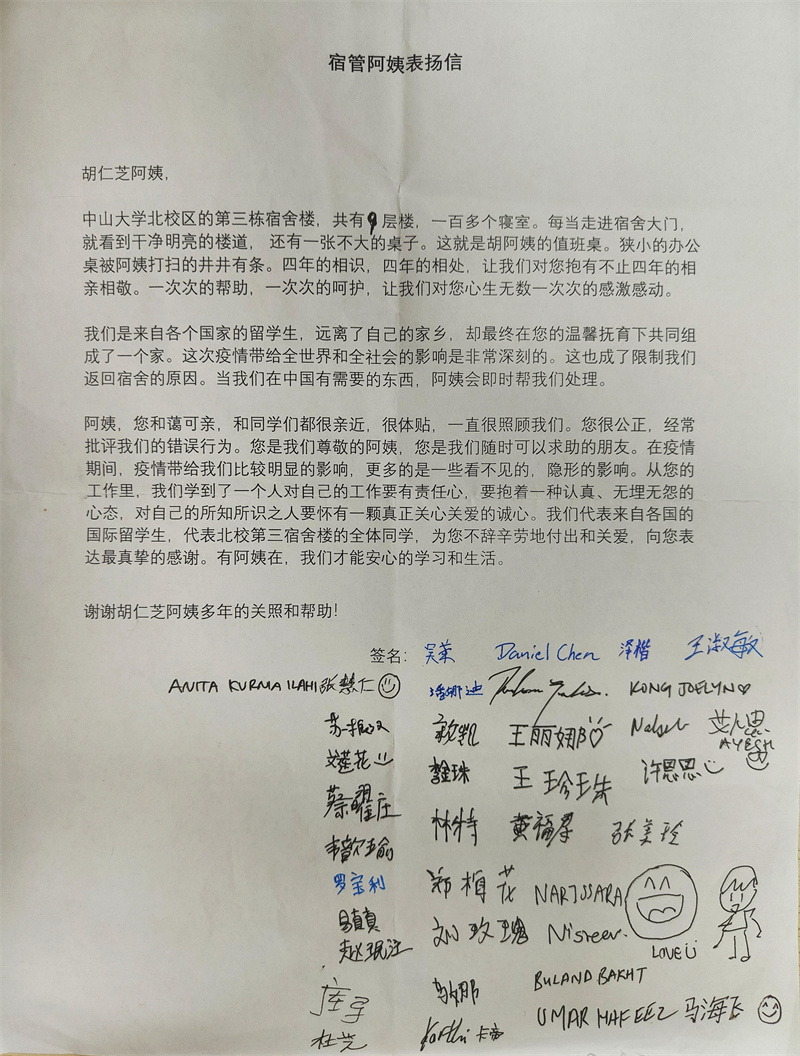 宿管阿姨表扬信
胡仁芝阿姨，
中山大学北校区的第三栋宿舍楼，共有9层楼，一百多个寝室。每当走进宿舍大门，
就看到干净明亮的楼道， 还有一张不大的桌子。这就是胡阿姨的值班桌。狭小的办公
桌被阿姨打扫的井井有条。四年的相识，四年的相处，让我们对您抱有不止四年的相
亲相敬。一次次的帮助，一次次的呵护，让我们对您心生无数一次次的感激感动。
我们是来自各个国家的留学生，远离了自己的家乡，却最终在您的温馨抚育下共同组
成了一个家。这次疫情带给全世界和全社会的影响是非常深刻的。这也成了限制我们
返回宿舍的原因。当我们在中国有需要的东西，阿姨会即时帮我们处理。
阿姨，您和蔼可亲，和同学们都很亲近，很体贴，一直很照顾我们。您很公正，经常
批评我们的错误行为。您是我们尊敬的阿姨，您是我们随时可以求助的朋友。在疫情
期间，疫情带给我们比较明显的影响，更多的是一些看不见的，隐形的影响。从您的
工作里，我们学到了一个人对自己的工作要有责任心，要抱着一种认真、无埋无怨的
心态，对自己的所知所识之人要怀有一颗真正关心关爱的诚心。我们代表来自各国的
国际留学生，代表北校第三宿舍楼的全体同学，为您不辞辛劳地付出和关爱，向您表
达最真挚的感谢。有阿姨在，我们才能安心的学习和生活。
谢谢胡仁芝阿姨多年的关照和帮助！
签名： Daniel Chen 泽楷 王淑敏
ANITA KURNIA ILAHI 张慧仁 KONG JOELYN♡
王丽娜 AYESH
莲花 金珠 王珍珠 许思思
蔡曜庄 林特 黄福摩 张美玲
罗宝利 郑梅花 NARISSARA
刘玫瑰 Nisreen. LOVE
BULAND BAKHT
杜芒 卡帝 UMAR HAFEEZ 马海飞